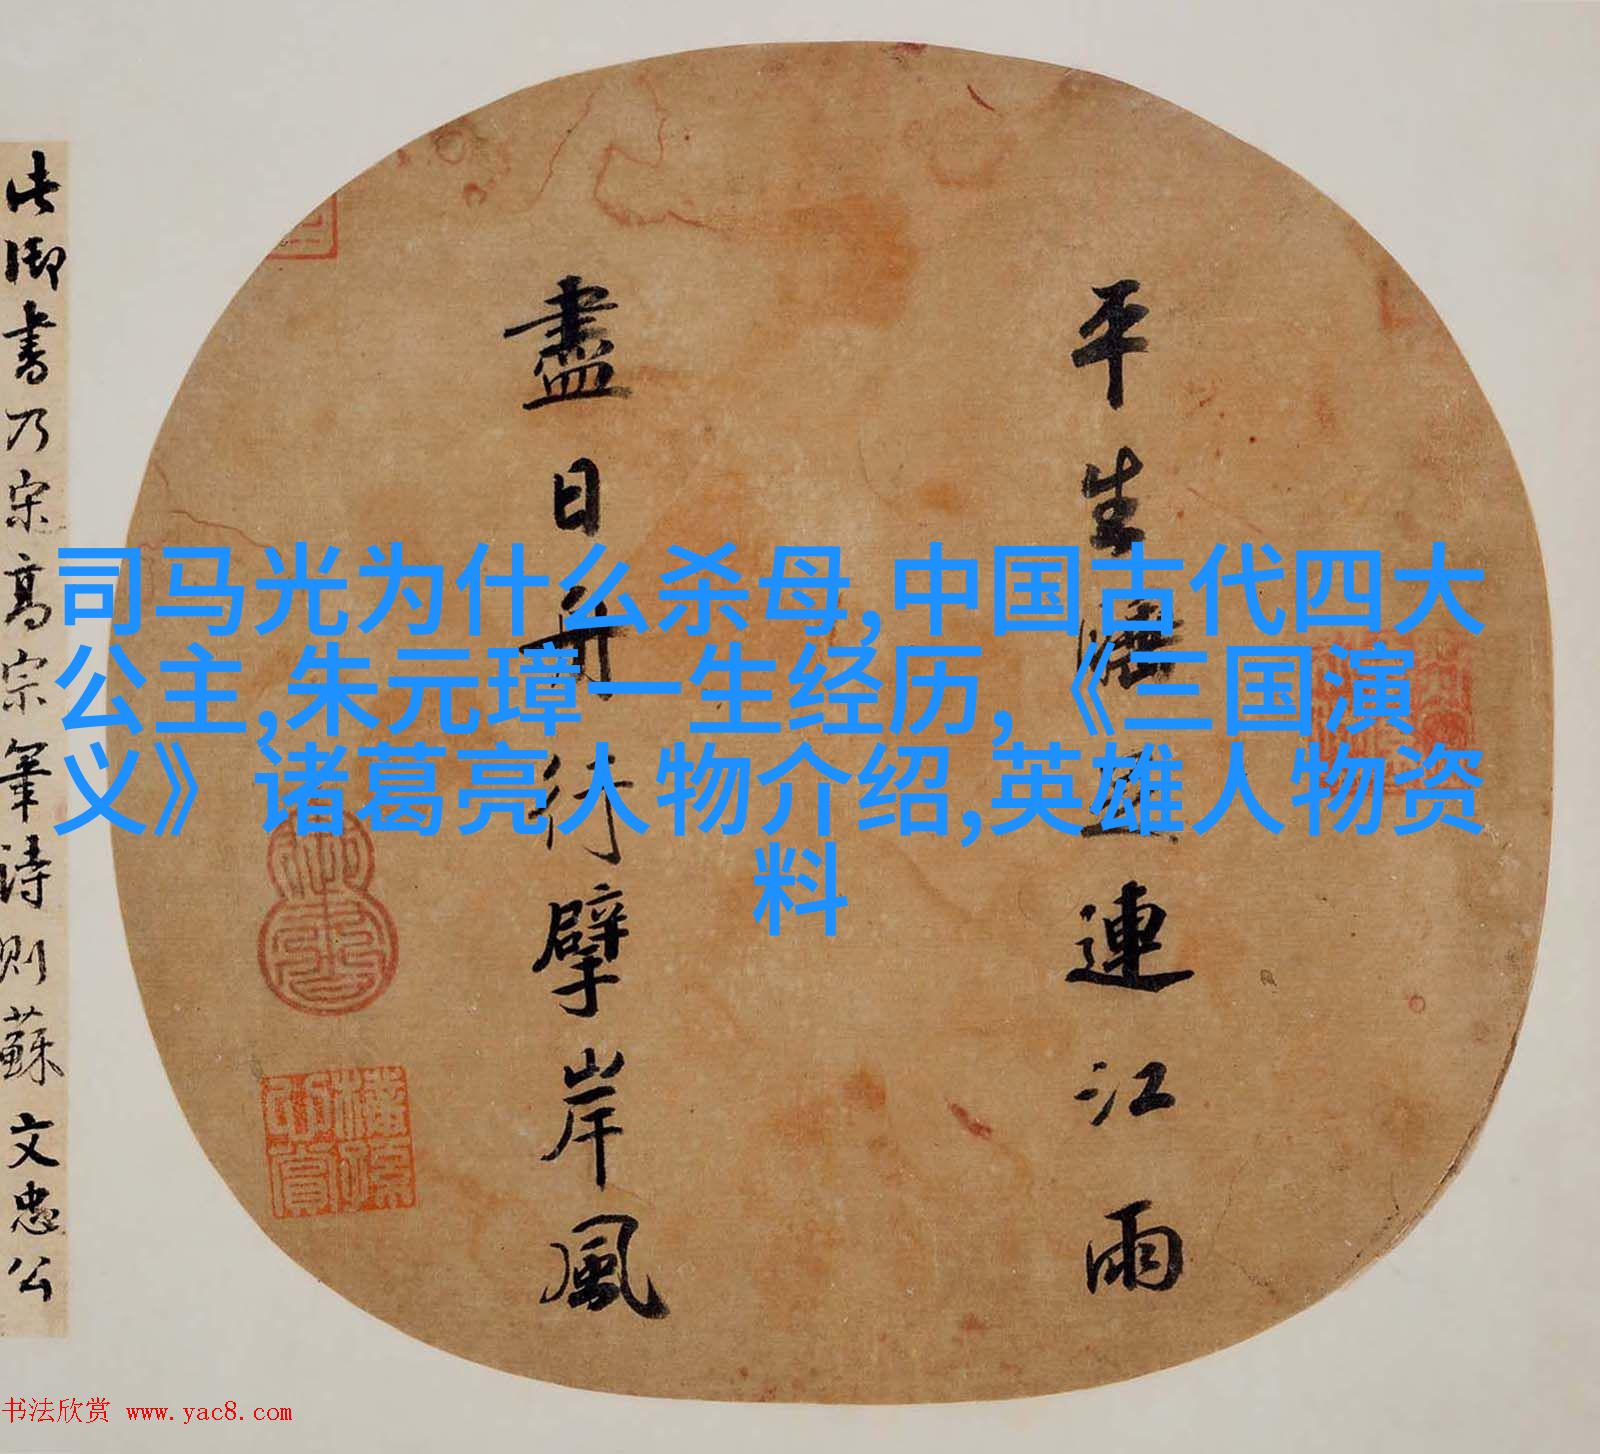 司马光为什么杀母,中国古代四大
公主,朱元璋一生经历,《三国演
义》诸葛亮人物介绍,英雄人物资
料
平生睡足連江雨
盡日舟行擘岸風
此御書乃宋高宗筆詩則蘇文忠公
书法欣赏 www.yac8.com